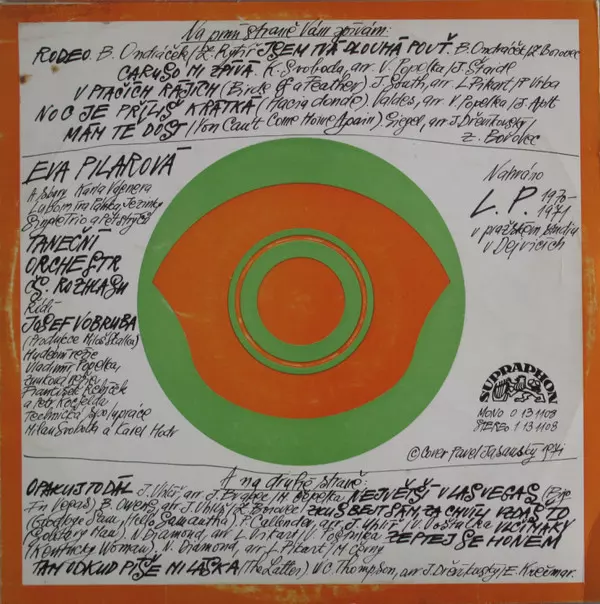 Na první straně Vám zpívám:
RODEO. B. Ondráček/Z. Rytíř JSEM TVÁ DLOUHÁ POUŤ. B. Ondráček/Z. Borovec
CARUSO MI ZPÍVÁ. K. Svoboda, arr. V. Popelka/J. Štaidl
V PTAČÍCH RÁJÍCH (Birds of a Feather) J. South, arr. L. Pikart/P. Vrba
NOC JE PŘÍLIŠ KRÁTKÁ (Hacia donde) Valdes, arr. V. Popelka/J. Aplt
MÁM TĚ DOST (You Can't Come Home Again) Siegel, arr. J. Dřentovský/
Z. Borovec
EVA PILAROVÁ
A sbory Karla Vágnera
Lubomíra Pánka, Jezinky
TANEČNÍ
ORCHESTR
ČS. ROZHLASU
Řídí
JOSEF VOBRUBA
(Produkce Miloš Skalka)
Hudební režie
Vladimír Popelka,
zvuková režie
František Řebíček
a Petr Kocfelda
Technická spolupráce
Milan Svoboda a Karel Hodr
Nahráno
L. P. 1970-
1971
v pražském studiu
v Dejvicích
SUPRAPHON
MONO 0 13 1108
STEREO 1 13 1108
© Cover Pavel Jasanský 1971
A na druhé straně:
OPAKUJ TO DÁL J. Uhlíř, arr. J. Brabec/V. Popelka NEJVĚTŠÍ V LAS VEGAS (Big
In Vegas) B. Owens, arr. J. Uhlíř/Z. Borovec ZKUS BEJT SÁM, ZA CHVÍLI VZDÁŠ TO
(Goodbye Sam, Hello Samantha) P. Callender, arr. J. Uhlíř/V. Poštulka VLČÍ MÁKY
(Solitary Man) N. Diamond, arr. L. Pikart/V. Poštulka ZEPTEJ SE HONEM
(Kentucky Woman) N. Diamond, arr. L. Pikart/M. Černý
TAM ODKUD PÍŠE MI LÁSKA (The Letter) W. C. Thompson, arr. J. Dřentovský/E. Krečmar.